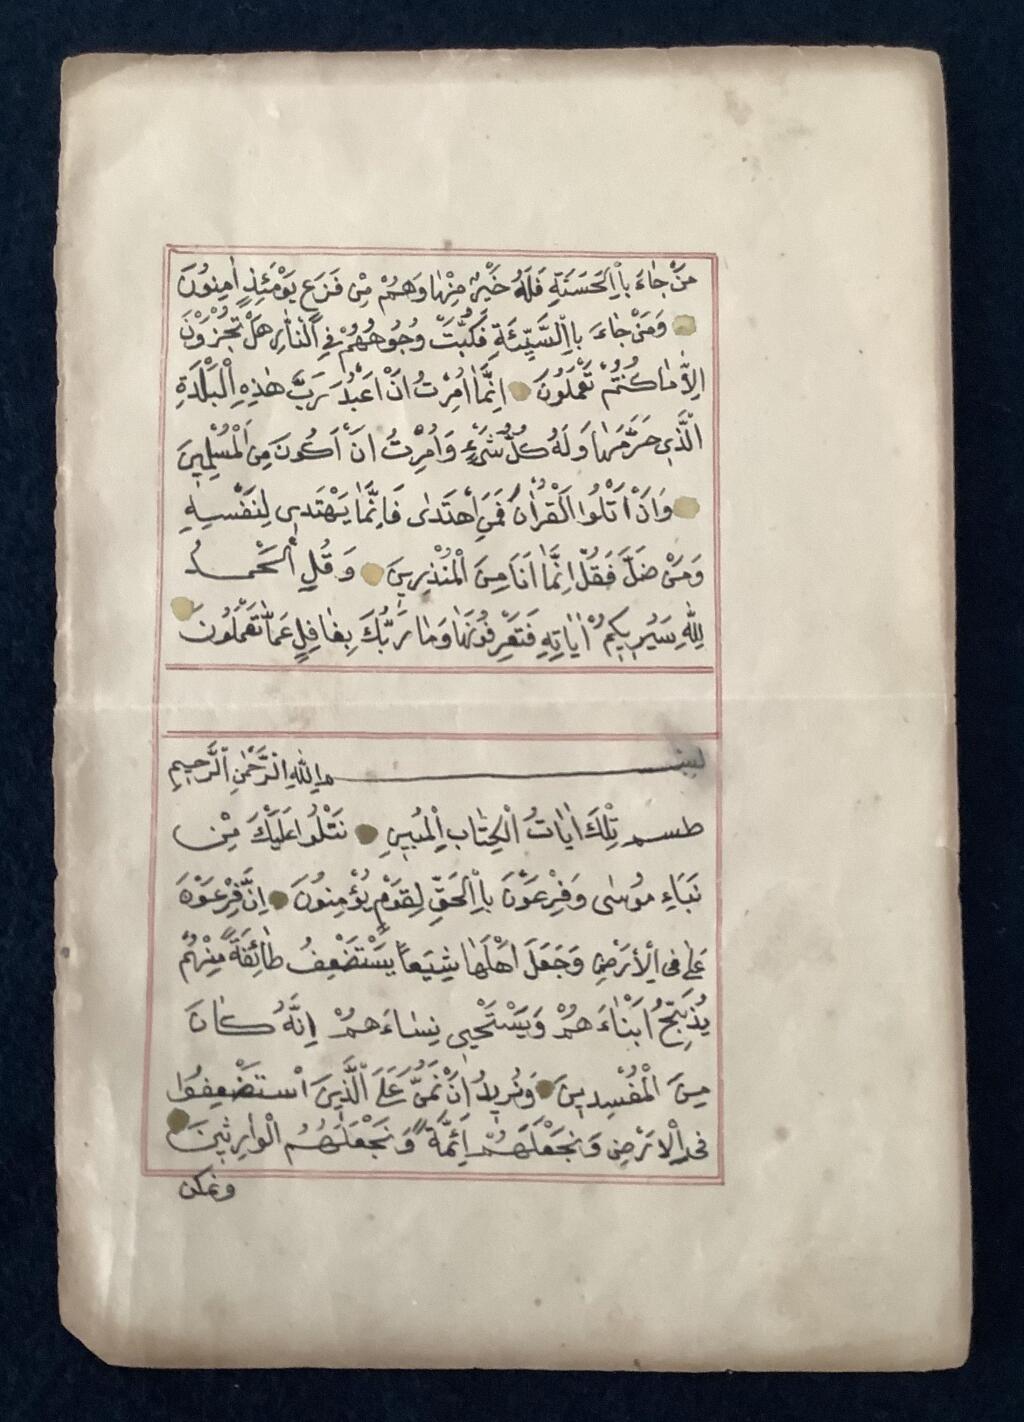 مَنْ جَاءَ بِالْحَسَنَةِ فَلَهُ خَيْرٌ مِنْهَا وَهُمْ مِنْ فَزَعٍ يَوْمَئِذٍ اٰمِنُونَ
وَمَنْ جَاءَ بِالسَّيِّئَةِ فَكُبَّتْ وُجُوهُهُمْ فِي النَّارِ هَلْ تُجْزَوْنَ
اِلَّا مَا كُنْتُمْ تَعْمَلُونَ اِنَّمَا اُمِرْتُ اَنْ اَعْبُدَ رَبَّ هٰذِهِ الْبَلْدَةِ
الَّذِي حَرَّمَهَا وَلَهُ كُلُّ شَيْءٍ وَاُمِرْتُ اَنْ اَكُونَ مِنَ الْمُسْلِمِينَ
وَاَنْ اَتْلُوَا الْقُرْاٰنَ فَمَنِ اهْتَدٰى فَاِنَّمَا يَهْتَدِي لِنَفْسِهِ
وَمَنْ ضَلَّ فَقُلْ اِنَّمَا اَنَا مِنَ الْمُنْذِرِينَ وَقُلِ الْحَمْدُ
لِلّٰهِ سَيُرِيكُمْ اٰيَاتِهِ فَتَعْرِفُونَهَا وَمَا رَبُّكَ بِغَافِلٍ عَمَّا تَعْمَلُونَ
بسم اللهِ الرَّحْمٰنِ الرَّحِيمِ
طسم تِلْكَ اٰيَاتُ الْكِتَابِ الْمُبِينِ نَتْلُوا عَلَيْكَ مِنْ
نَبَاءِ مُوسٰى وَفِرْعَوْنَ بِالْحَقِّ لِقَوْمٍ يُؤْمِنُونَ اِنَّ فِرْعَوْنَ
عَلٰى فِي الْاَرْضِ وَجَعَلَ اَهْلَهَا شِيَعاً يَسْتَضْعِفُ طَائِفَةً مِنْهُمْ
يُذَبِّحُ اَبْنَاءَهُمْ وَيَسْتَحْيِي نِسَاءَهُمْ اِنَّهُ كَانَ
مِنَ الْمُفْسِدِينَ وَنُرِيدُ اَنْ نَمُنَّ عَلَى الَّذِينَ اسْتُضْعِفُوا
فِي الْاَرْضِ وَنَجْعَلَهُمْ اَئِمَّةً وَنَجْعَلَهُمُ الْوَارِثِينَ
ونمكن